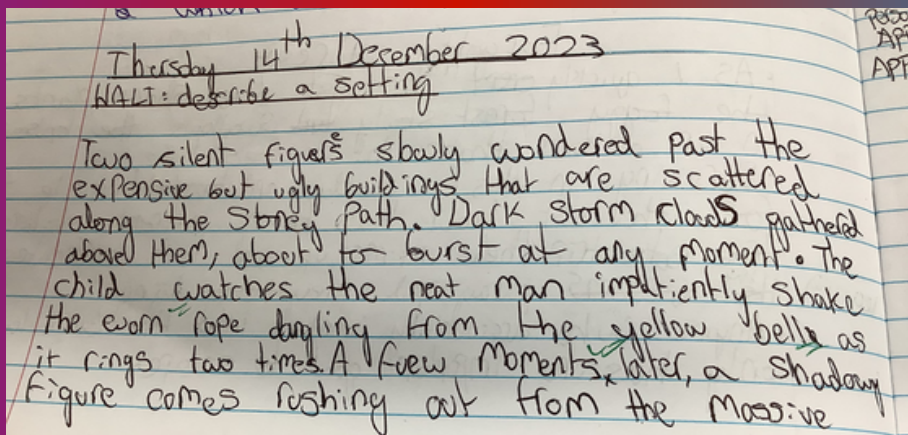 Thursday 14th December 2023
WALT: describe a setting
Two silent figuers slowly wondered past the
expensive but ugly buildings that are scattered
along the Stoney Path. Dark storm clouds gatherd
above them, about to burst at any moment. The
child watches the neat man impatiently shake
the worn rope dangling from the yellow belly as
it rings two times. A fuew moments later, a shadowy
Figure comes rushing out from the massive